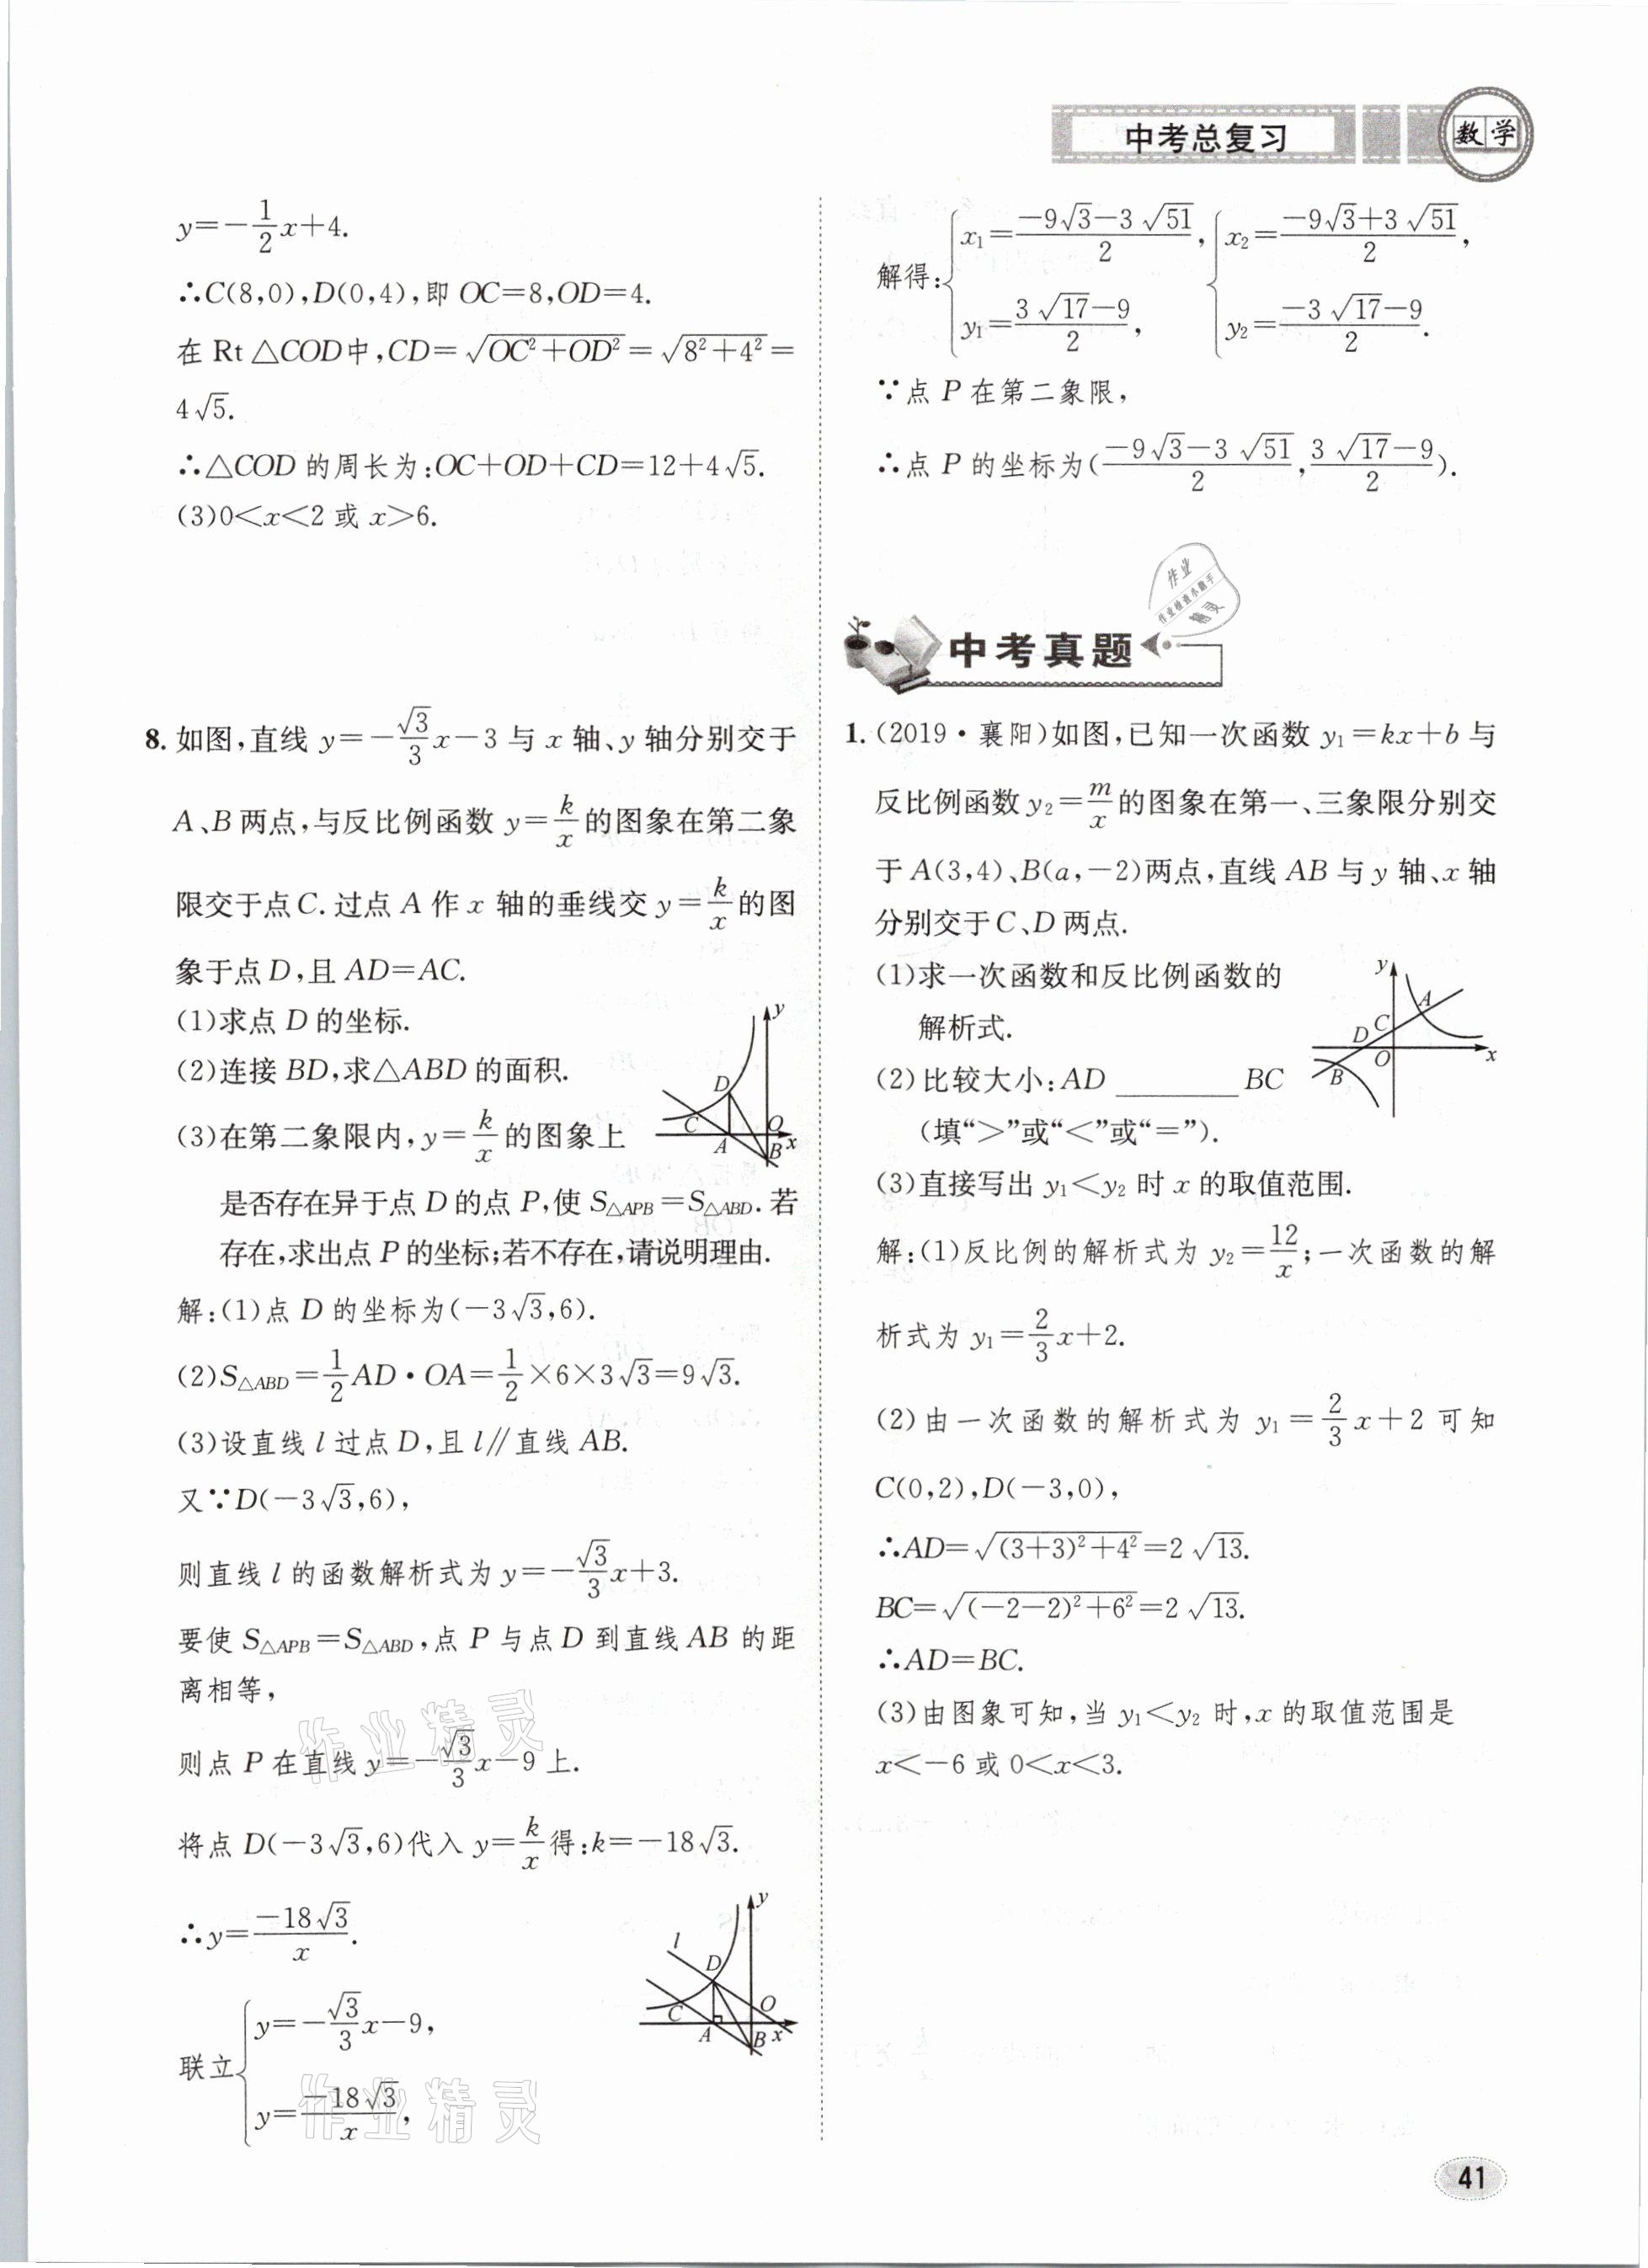 中考总复习
数学
y=-\frac{1}{2}x+4.
∴C(8,0),D(0,4),即 OC=8,OD=4.
在 Rt △COD中,CD=\sqrt{OC²+OD²}=\sqrt{8²+4²}=
4√5.
∴△COD 的周长为:OC+OD+CD=12+4√5.
(3)0<x<2 或 x>6.
8. 如图,直线 y=-\frac{√3}{3}x-3 与 x 轴、y 轴分别交于
A、B 两点,与反比例函数 y=\frac{k}{x}的图象在第二象
限交于点 C. 过点 A 作 x 轴的垂线交 y=\frac{k}{x}的图
象于点 D,且 AD=AC.
(1)求点 D 的坐标.
(2)连接 BD,求△ABD 的面积.
(3)在第二象限内,y=\frac{k}{x}的图象上
是否存在异于点 D 的点 P,使 S△APB=S△ABD. 若
存在,求出点 P 的坐标;若不存在,请说明理由.
y
D
C
A
O
B
x
解:(1)点 D 的坐标为(-3√3,6).
(2)S△ABD=\frac{1}{2}AD·OA=\frac{1}{2}×6×3√3=9√3.
(3)设直线 l 过点 D,且 l∥直线 AB.
又∵D(-3√3,6),
则直线 l 的函数解析式为 y=-\frac{√3}{3}x+3.
要使 S△APB=S△ABD,点 P 与点 D 到直线 AB 的距
离相等,
则点 P 在直线 y=-\frac{√3}{3}x-9 上.
将点 D(-3√3,6)代入 y=\frac{k}{x}得:k=-18√3.
∴y=\frac{-18√3}{x}.
联立{y=-\frac{√3}{3}x-9,
y=\frac{-18√3}{x},
y
l
D
C
O
A
B
x
作业精灵
作业精灵
解得:{x₁=\frac{-9√3-3√51}{2}, {x₂=\frac{-9√3+3√51}{2},
y₁=\frac{3√17-9}{2}, y₂=\frac{-3√17-9}{2}.
∵点 P 在第二象限,
∴点 P 的坐标为(\frac{-9√3-3√51}{2},\frac{3√17-9}{2}).
作业
作业检查小助手
精灵
中考真题
1. (2019·襄阳)如图,已知一次函数 y₁=kx+b 与
反比例函数 y₂=\frac{m}{x}的图象在第一、三象限分别交
于 A(3,4)、B(a,-2)两点,直线 AB 与 y 轴、x 轴
分别交于 C、D 两点.
(1)求一次函数和反比例函数的
解析式.
(2)比较大小:AD ________ BC
(填“>”或“<”或“=”).
(3)直接写出 y₁<y₂ 时 x 的取值范围.
y
A
C
D
O
B
x
解:(1)反比例的解析式为 y₂=\frac{12}{x};一次函数的解
析式为 y₁=\frac{2}{3}x+2.
(2)由一次函数的解析式为 y₁=\frac{2}{3}x+2 可知
C(0,2),D(-3,0),
∴AD=\sqrt{(3+3)²+4²}=2√13.
BC=\sqrt{(-2-2)²+6²}=2√13.
∴AD=BC.
(3)由图象可知,当 y₁<y₂ 时,x 的取值范围是
x<-6 或 0<x<3.
41